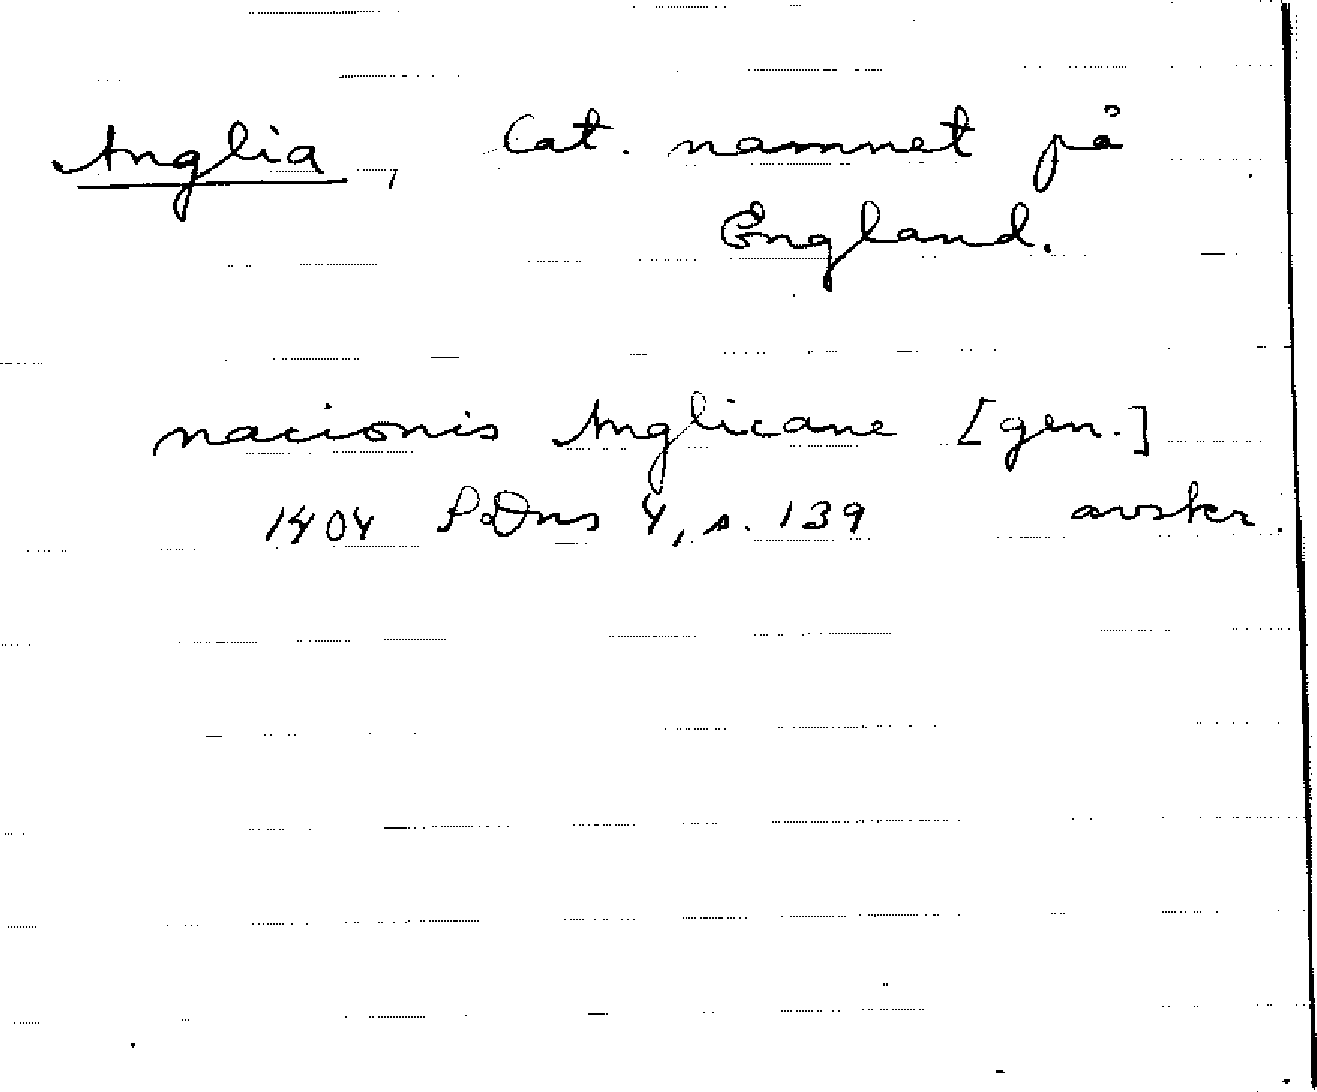 Anglia, Lat. namnet på
England.
nacionis Anglicane [gen.]
1404 PDns 4, s. 139 avskr.